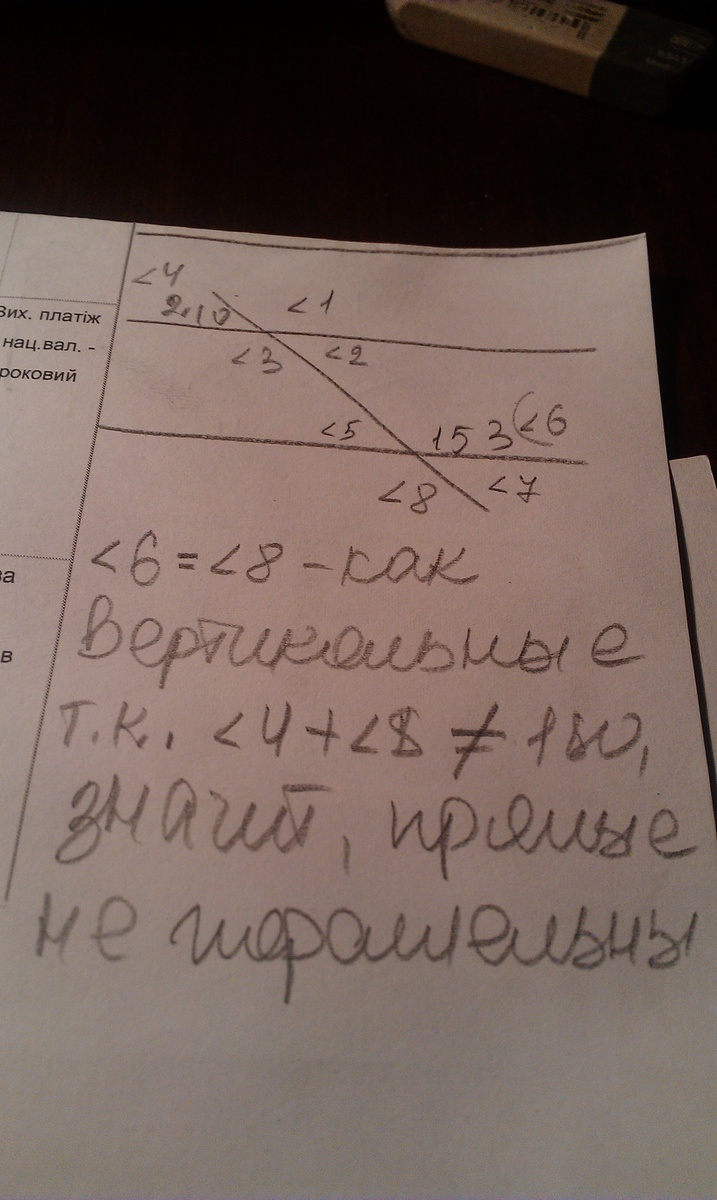 Вих. платіж
нац.вал. -
роковий
ва
в
<4
<1
<3 <2
<5 153 <6
<8 <7
<6 = <8 - как
Вертикальные
т.к. <4 + <8 ≠ 180,
значит, прямые
не